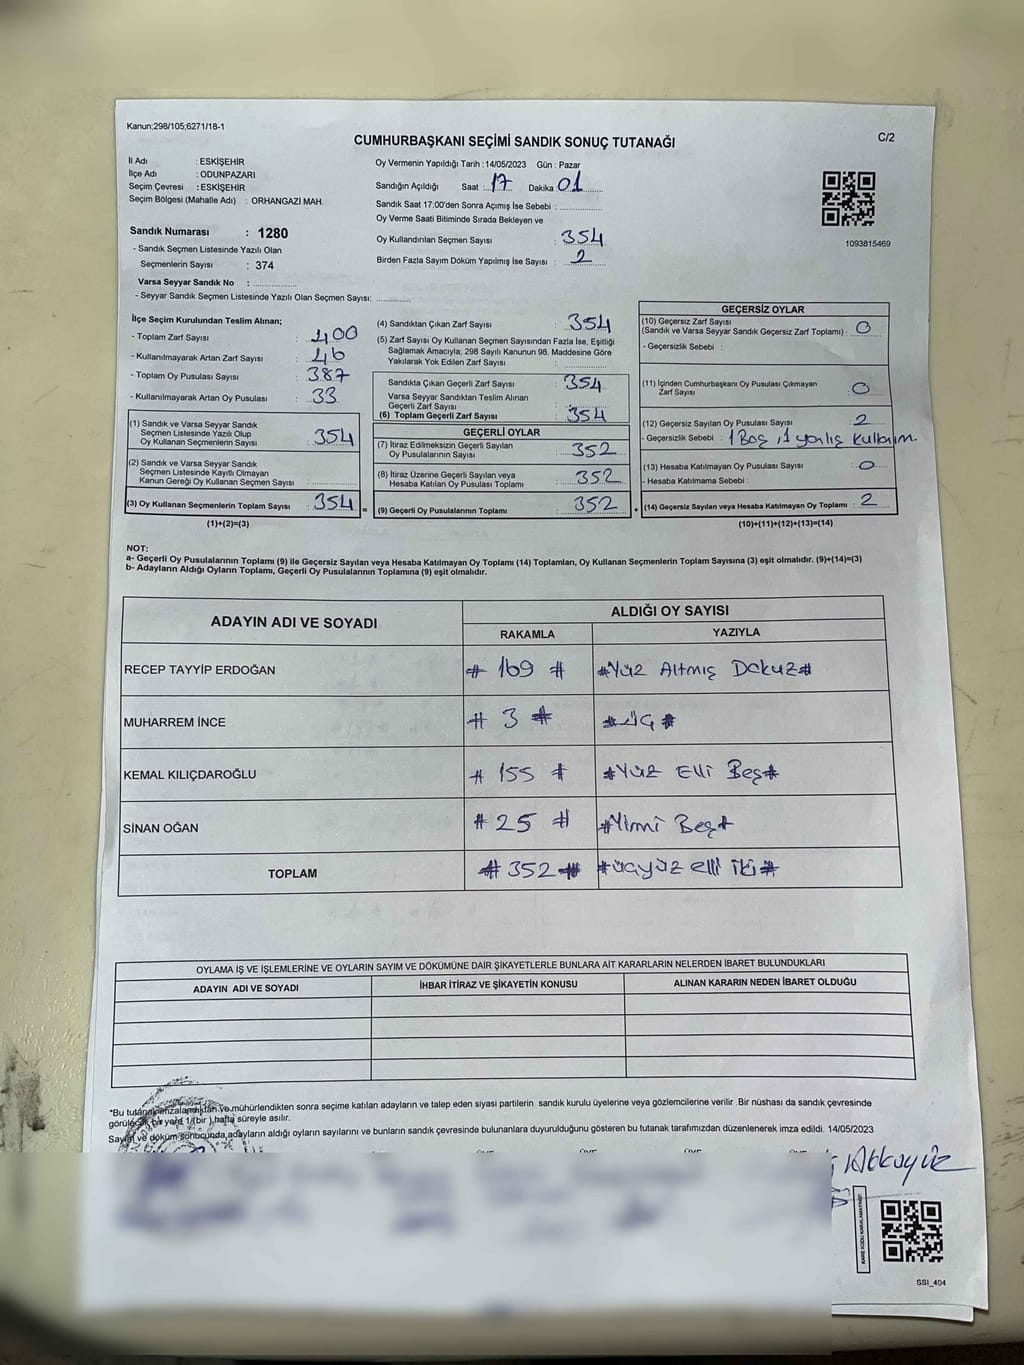 Kanun;298/105;6271/18-1
CUMHURBAŞKANI SEÇİMİ SANDIK SONUÇ TUTANAĞI
C/2
İl Adı : ESKİŞEHİR
İlçe Adı : ODUNPAZARI
Seçim Çevresi : ESKİŞEHİR
Seçim Bölgesi (Mahalle Adı) : ORHANGAZİ MAH.
Sandık Numarası : 1280
- Sandık Seçmen Listesinde Yazılı Olan
Seçmenlerin Sayısı : 374
Varsa Seyyar Sandık No : ..................
- Seyyar Sandık Seçmen Listesinde Yazılı Olan Seçmen Sayısı: ..............
Oy Vermenin Yapıldığı Tarih :14/05/2023 Gün : Pazar
Sandığın Açıldığı Saat :..17 Dakika :01
Sandık Saat 17:00'den Sonra Açımış İse Sebebi : ................
Oy Verme Saati Bitiminde Sırada Bekleyen ve
Oy Kullandırılan Seçmen Sayısı : 354
Birden Fazla Sayım Döküm Yapılmış İse Sayısı : 2
1093815469
İlçe Seçim Kurulundan Teslim Alınan;
- Toplam Zarf Sayısı : 400
- Kullanılmayarak Artan Zarf Sayısı : 46
- Toplam Oy Pusulası Sayısı : 387
- Kullanılmayarak Artan Oy Pusulası : 33
(1) Sandık ve Varsa Seyyar Sandık
Seçmen Listesinde Yazılı Olup
Oy Kullanan Seçmenlerin Sayısı : 354
(2) Sandık ve Varsa Seyyar Sandık
Seçmen Listesinde Kayıtlı Olmayan
Kanun Gereği Oy Kullanan Seçmen Sayısı : ..............
(3) Oy Kullanan Seçmenlerin Toplam Sayısı : 354 =
(1)+(2)=(3)
(4) Sandıktan Çıkan Zarf Sayısı : 354
(5) Zarf Sayısı Oy Kullanan Seçmen Sayısından Fazla İse, Eşitliği
Sağlamak Amacıyla; 298 Sayılı Kanunun 98. Maddesine Göre
Yakılarak Yok Edilen Zarf Sayısı : ..............
Sandıkta Çıkan Geçerli Zarf Sayısı : 354
Varsa Seyyar Sandıktan Teslim Alınan
Geçerli Zarf Sayısı
(6) Toplam Geçerli Zarf Sayısı : 354
GEÇERLİ OYLAR
(7) İtiraz Edilmeksizin Geçerli Sayılan
Oy Pusulalarının Sayısı : 352
(8) İtiraz Üzerine Geçerli Sayılan veya
Hesaba Katılan Oy Pusulası Toplamı : 352
(9) Geçerli Oy Pusulalarının Toplamı : 352 +
GEÇERSİZ OYLAR
(10) Geçersiz Zarf Sayısı
(Sandık ve Varsa Seyyar Sandık Geçersiz Zarf Toplamı) : 0
- Geçersizlik Sebebi :
(11) İçinden Cumhurbaşkanı Oy Pusulası Çıkmayan
Zarf Sayısı : 0
(12) Geçersiz Sayılan Oy Pusulası Sayısı : 2
- Geçersizlik Sebebi : 1 Boş, 1 yanlış kullanım.
(13) Hesaba Katılmayan Oy Pusulası Sayısı : 0
- Hesaba Katılmama Sebebi :
(14) Geçersiz Sayılan veya Hesaba Katılmayan Oy Toplamı : 2
(10)+(11)+(12)+(13)=(14)
NOT:
a- Geçerli Oy Pusulalarının Toplamı (9) ile Geçersiz Sayılan veya Hesaba Katılmayan Oy Toplamı (14) Toplamları, Oy Kullanan Seçmenlerin Toplam Sayısına (3) eşit olmalıdır. (9)+(14)=(3)
b- Adayların Aldığı Oyların Toplamı, Geçerli Oy Pusulalarının Toplamına (9) eşit olmalıdır.
ADAYIN ADI VE SOYADI
ALDIĞI OY SAYISI
RAKAMLA YAZIYLA
RECEP TAYYİP ERDOĞAN # 169 # #Yüz Altmış Dokuz#
MUHARREM İNCE # 3 # #üç#
KEMAL KILIÇDAROĞLU # 155 # #Yüz Elli Beş#
SİNAN OĞAN # 25 # #Yirmi Beş#
TOPLAM # 352 # #üçyüz elli iki#
OYLAMA İŞ VE İŞLEMLERİNE VE OYLARIN SAYIM VE DÖKÜMÜNE DAİR ŞİKAYETLERLE BUNLARA AİT KARARLARIN NELERDEN İBARET BULUNDUKLARI
ADAYIN ADI VE SOYADI İHBAR İTİRAZ VE ŞİKAYETİN KONUSU ALINAN KARARIN NEDEN İBARET OLDUĞU
*Bu tutanak imzalandıktan ve mühürlendikten sonra seçime katılan adayların ve talep eden siyasi partilerin sandık kurulu üyelerine veya gözlemcilerine verilir. Bir nüshası da sandık çevresinde
görülecek bir yere 1 (bir) hafta süreyle asılır.
Sayım ve döküm sonucunda adayların aldığı oyların sayılarını ve bunların sandık çevresinde bulunanlara duyurulduğunu gösteren bu tutanak tarafımızdan düzenlenerek imza edildi. 14/05/2023
Akkuyüz
KARE KODU KARALAMAYINIZ!
SSI_404